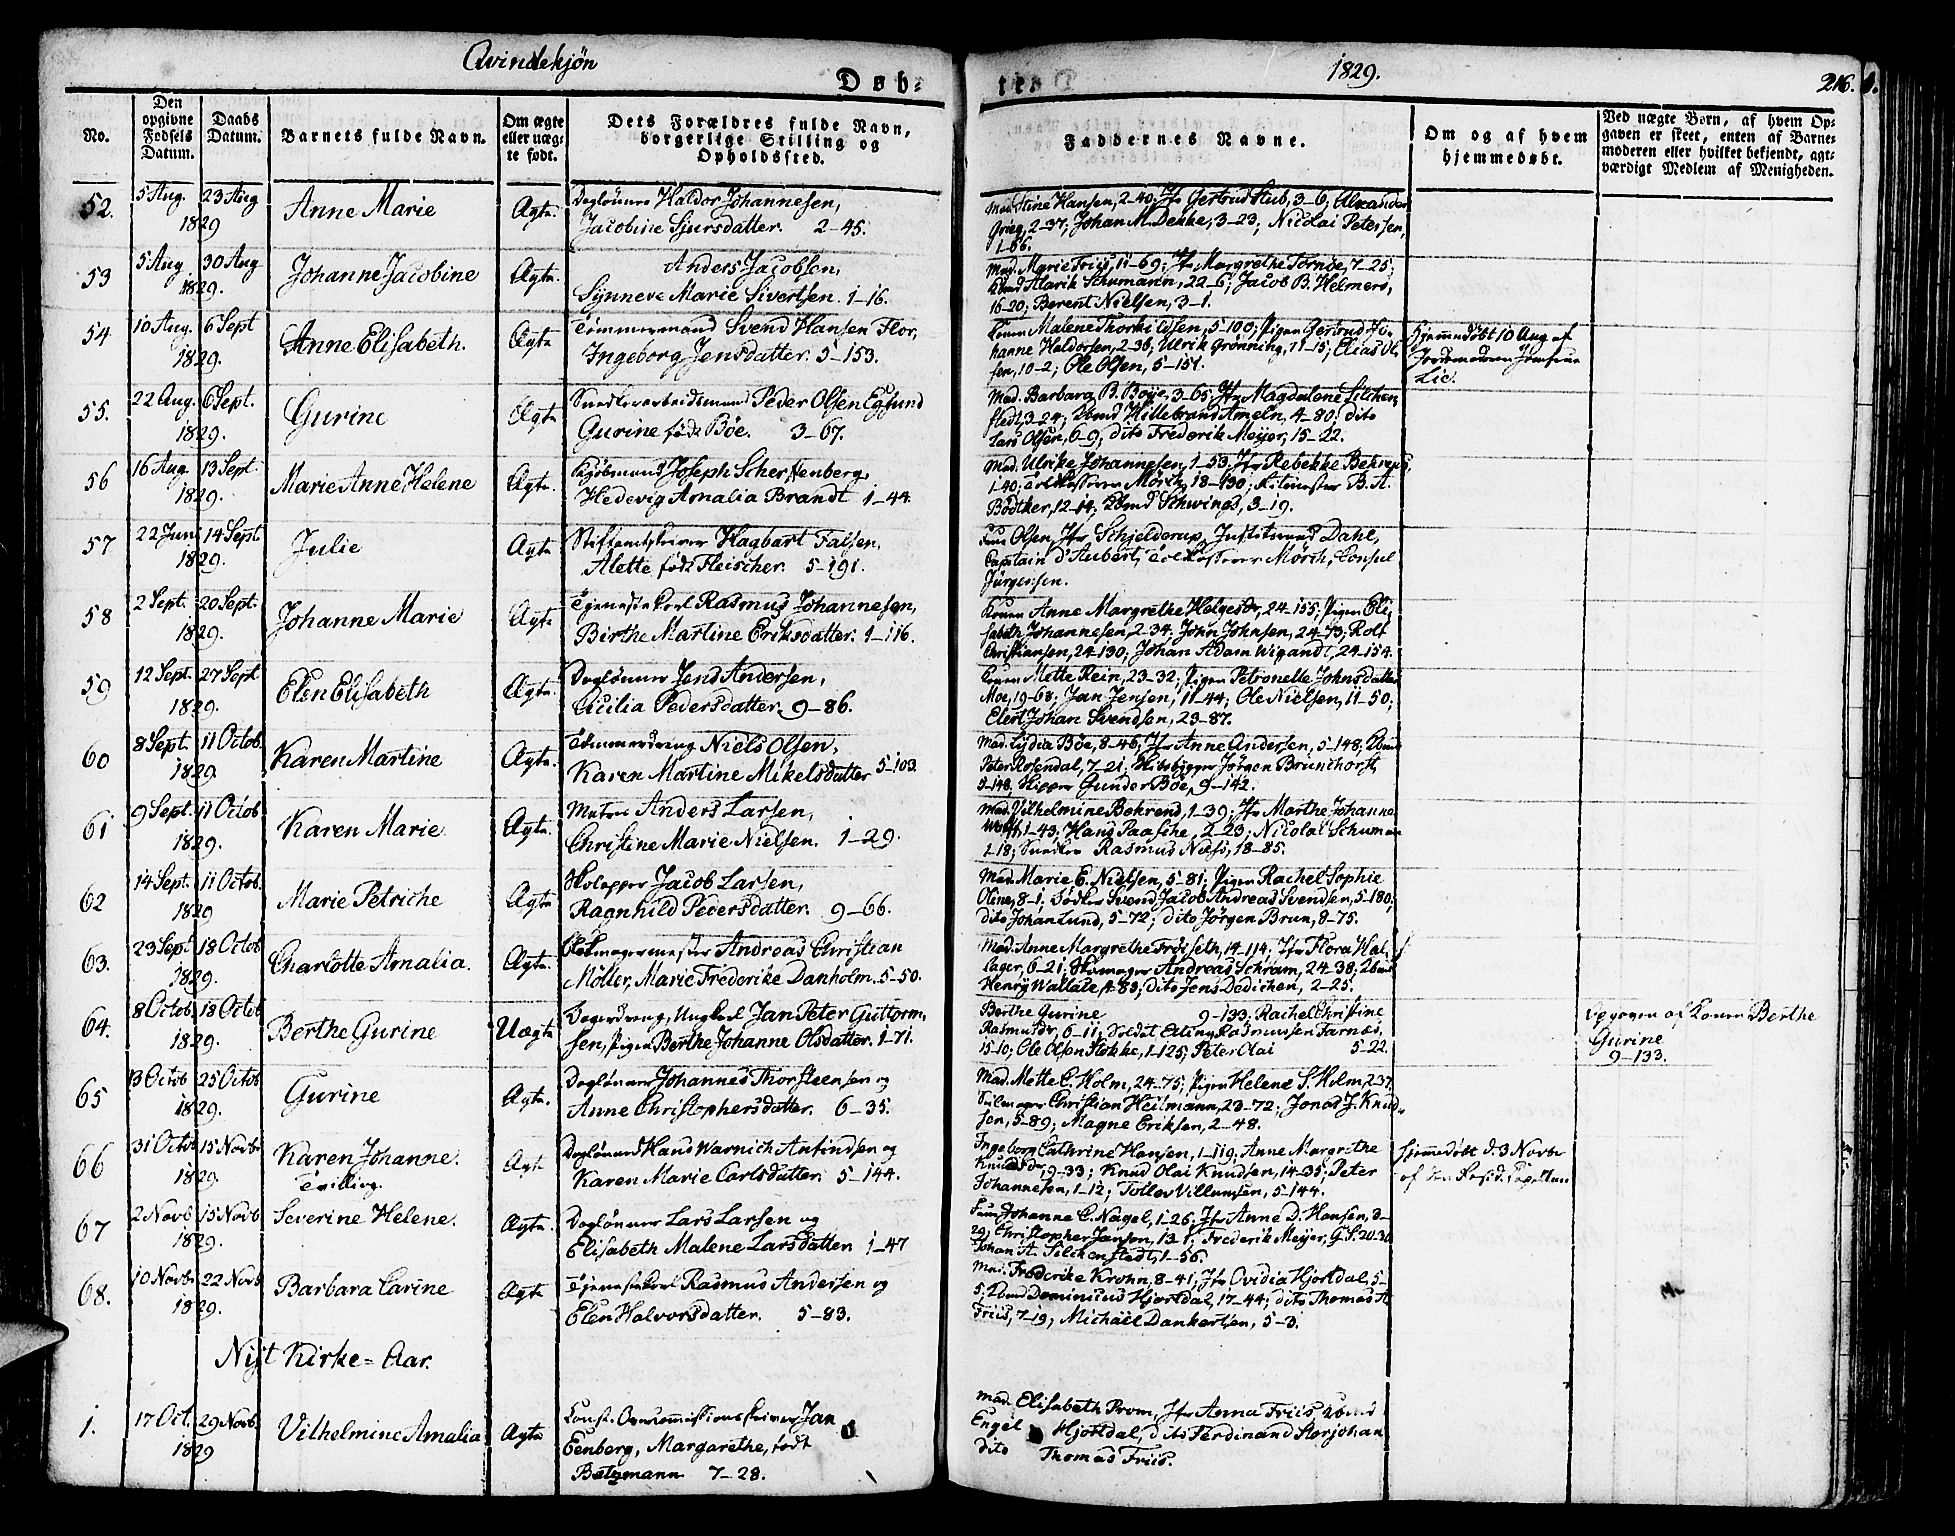 Qvindekjøn
Døb-
1829.
216.
No.
Den opgivne Fødsels Datum.
Daabs Datum.
Barnets fulde Navn.
Om ægte eller uægte født.
Dets Forældres fulde Navn, borgerlige Stilling og Opholdssted.
Faddernes Navne.
Om og af hvem hjemmedøbt.
Ved uægte Børn, af hvem Opgaven er skeet, enten af Barnemoderen eller hvilket bekjendt, agtværdigt Medlem af Menigheden.
52. 5 Aug. 23 Aug 1829 Anne Marie Ægte. Daglønner Haldor Johannesen,
Jacobine Sjursdatter. 2-45.
Mad. Stine Hansen, 2-40; Jfr Gertrud Stub, 3-6, Alexander
Grieg, 2-37; Johan M. Denke, 3-23; Nicolai Petersen,
1-66.
53 5 Aug. 30 Aug 1829. Johanne Jacobine Ægte. Anders Jacobsen,
Synneve Marie Sivertsen. 1-16.
Mad. Marie Friis, 11-69; Jfr Margrethe Tornøe, 7-25;
Kbmd Alarik Schumann, 22-6; Jacob B. Helmers,
16-20; Berent Nielsen, 3-1.
54 10 Aug. 6 Sept 1829. Anne Elisabeth. Ægte Tømmermand Svend Hansen Flor,
Ingeborg Jensdatter. 5-153.
Konen Malene Thorkildsen, 5-100; Pigen Gertrud Jo-
hanne Haldorsen, 2-96, Ulrik Grønning, 11-15; Elias Ol-
sen, 10-2; Ole Olsen, 5-151.
Hjemmedøbt 10 Aug. af
Jordemoderen Jomfrue
Lie.
55. 22 Aug. 6 Sept. 1829. Gurine Ægte Snedkerarbeidsmand Peder Olsen Egesund
Gurine født Bøe. 3-67.
Mad. Barbara B. Bøye, 3-65; Jfr Magdalene Silchen-
stedt, 3-24; Kbmd Hillebrand Ameln, 4-80; dito
Lars Olsen, 6-9; dito Frederik Meijer, 15-22.
56 16 Aug. 13 Sept. 1829. Marie Anne Helene Ægte. Kjøbmand Joseph Scherffenberg,
Hedevig Amalia Brandt 1-44
Mad. Ulrike Johannesen, 1-53, Jfr Rebekke Behrens,
1-40; Toldkasserer Mørch, 18-130; Ritmester B. A.
Bødtker, 12-14; Kbmd Schwings, 3-19.
57 22 Jun. 14 Sept 1829. Julie Ægte Stiftamtskriver Hagbart Falsen,
Alette født Fleischer. 5-191.
Frue Olsen, Jfr Schjelderup, Justitsraad Dahl,
Capitain d'Aubert, Toldkasserer Mørch, Consul
Jürgensen.
58 2 Sept. 20 Sept. 1829. Johanne Marie Ægte Tjenestekarl Rasmus Johannesen,
Birthe Martine Eriksdatter. 1-116.
Konen Anne Margrethe Helgesdr, 24-155; Pigen Eli-
sabeth Johannesen, 2-34; John Johnsen, 24-73; Rolf
Christiansen, 24-130; Johan Adam Wigandt, 24-154
59 12 Sept. 27 Sept 1829. Elen Elisabeth Ægte. Daglønner Jens Andersen,
Cicilia Pedersdatter, 9-86.
Konen Mette Rein, 23-32; Pigen Petronelle Johnsdatter
Moe, 19-68; Jan Jensen, 11-44; Ole Nielsen, 11-50;
Elert Johan Svendsen, 23-87.
60 8 Sept. 11 Octob. 1829. Karen Martine Ægte. Tømmerdreng Niels Olsen,
Karen Martine Mikelsdatter 5-103.
Mad. Lydia Bøe, 8-46; Jfr Anne Andersen, 5-148, Kbmd
Peter Rosendal, 7-21. Skibsbygger Jørgen Brunchorst,
8-148, Skipper Gunder Bøe, 9-142.
61 9 Sept. 11 Octob 1829. Karen Marie. Ægte. Murer Anders Larsen,
Christine Marie Nielsen. 1-29.
Mad. Vilhelmine Behrend, 1-39; Jfr Marthe Johanne
Wolff, 1-43; Hans Paasche, 2-23; Nicolai Schuman
1-18; Snedker Rasmus Næss, 18-85.
62 14 Sept. 11 Octob. 1829 Marie Petriche Ægte. Jacob Larsen,
Ragnhild Pedersdatter. 9-66.
Mad. Marie E. Nielsen, 5-81; Pigen Rachel Sophie
Oline, 8-1, Bødker Svend Jacob Andreas Svendsen, 5-180,
dito Johan Lund, 5-72; dito Jørgen Brun, 8-75.
63. 23 Sept 18 Octob 1829. Charlotte Amalia. Ægte. Andreas Christian
Møller, Marie Frederike Danholm. 5-50.
Mad. Anne Margrethe Frøiseth, 14-114; Jfr Flora Wal-
lager, 6-21; Skomager Andreas Schram, 24-38; Kbmd
Henry Wallace, 1-83; dito Jens Dedichen, 2-25.
64. 8 Octob. 18 Octob 1829. Berthe Gurine Uægte Bagerdreng, Ungkarl Jan Peter Guttorm-
sen, Pigen Berthe Johanne Olsdatter. 1-71.
Berthe Gurine 9-133; Rachel Christine
Rasmusdr, 6-11; Soldat Erling Rasmussen Farnæs,
15-10; Ole Olsen Stokke, 1-125; Peter Olai 5-22.
Opgaven af Konen Berthe
Gurine
9-133.
65 13 Octob 25 Octob 1829. Gurine Ægte. Daglønner Johannes Thorsteensen og
Anne Christophersdatter. 6-35.
Mad. Mette C. Holm, 24-75; Pigen Helene S. Holm, 2-37,
Seilmager Christian Heilmann, 23-72; Jonas J. Knud-
sen, 5-89; Magne Eriksen, 2-48.
66 31 Octob 15 Novbr 1829. Karen Johanne.
Tvilling. Ægte Daglønner Hans Warnich Anfindsen og
Karen Marie Carlsdatter. 5-144.
Ingeborg Cathrine Hansen, 1-119; Anne Margrethe
Knudsdr, 9-33; Knud Olai Knudsen, 14-35; Peter
Johannesen, 1-12; Tollev Villumsen, 5-144.
Hjemmedøbt d. 3 Novbr
af den Resid. Capellan
67 2 Novb 15 Novb 1829. Severine Helene. Ægte. Daglønner Lars Larsen og
Elisabeth Malene Larsdatter 1-47
Frue Johanne C. Nagel, 1-26; Jfr Anne D. Hansen, 3-
29; Christopher Jansen, 13-1; Frederik Meijer, G. S. 20-30
Johan A. Silchenstedt, 1-56.
68. 10 Novbr 22 Novb 1829. Barbara Carine Ægte Tjenestekarl Rasmus Andersen og
Elen Halvorsdatter. 5-83.
Mad. Frederike Krohn, 8-41; Jfr Ovidia Hjortdal, 5-
5; Kbmd Dominicus Hjortdal, 17-44; dito Thomas A
Friis, 7-19; Michael Dankertsen, 5-3.
Nyt Kirke-Aar.
1. 17 Oct. 29 Novb. 1829 Vilhelmine Amalia Ægte Const. Overcommissionsskriver Jan
Eenberg, Margarethe, født
Batzmann 7-28.
Mad. Elisabeth Prom, Jfr Anna Friis, Kbmd
Engel Hjortdal, dito Ferdinand Storjohan
dito Thomas Friis.